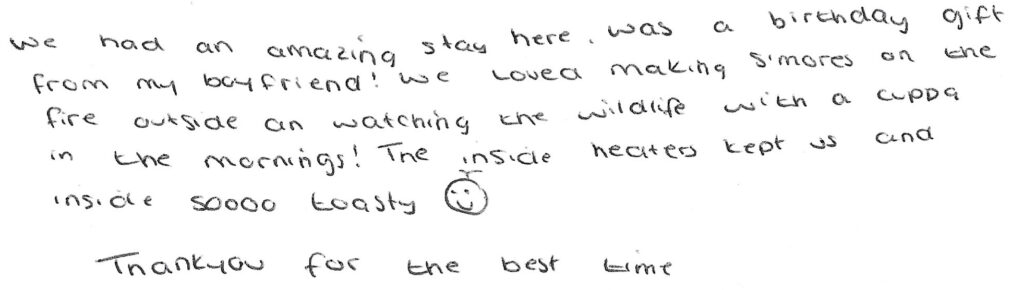 we had an amazing stay here, was a birthday gift
from my boyfriend! we loved making s'mores on the
fire outside an watching the wildlife with a cuppa
in the mornings! The inside heaters kept us and
inside soooo toasty
Thankyou for the best time